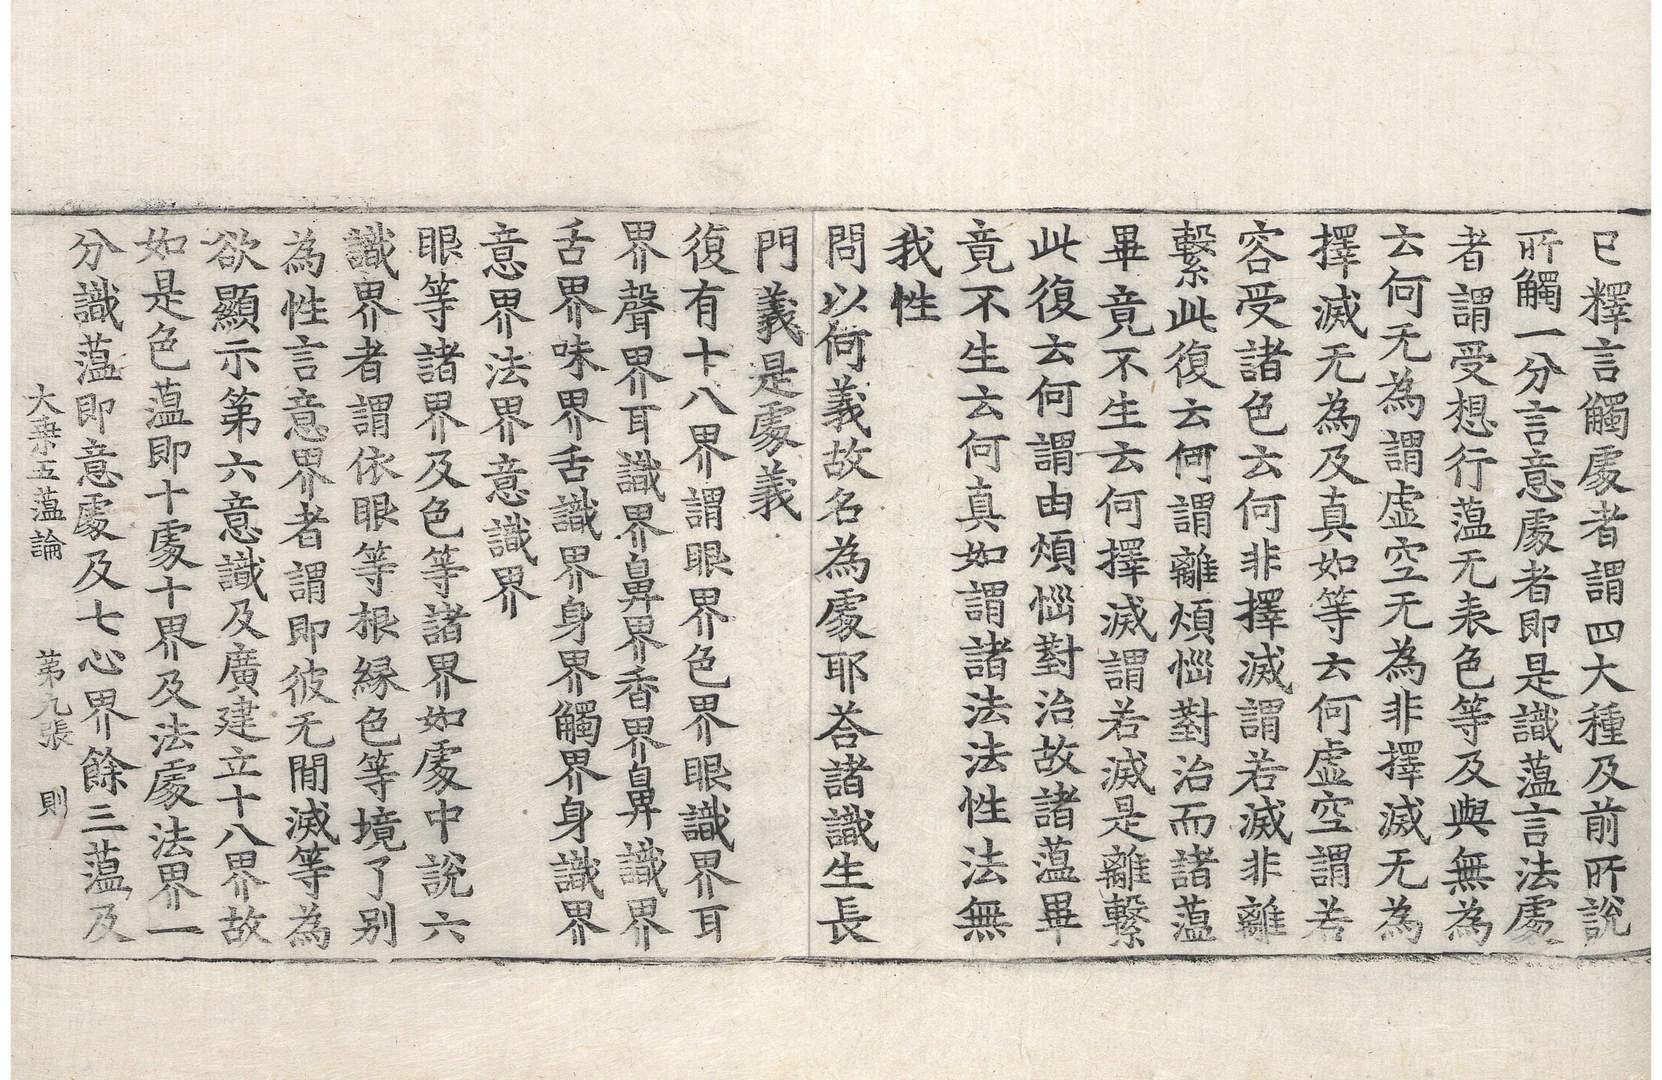 已釋言觸處者謂四大種及前所說
所觸一分言意處者即是識蘊言法處
者謂受想行蘊无表色等及與無為
云何无為謂虛空无為非擇滅无為
擇滅无為及真如等云何虛空謂若
容受諸色云何非擇滅謂若滅非離
繫此復云何謂離煩惱對治而諸蘊
畢竟不生云何擇滅謂若滅是離繫
此復云何謂由煩惱對治故諸蘊畢
竟不生云何真如謂諸法法性法無
我性
問以何義故名為處耶荅諸識生長
門義是處義
復有十八界謂眼界色界眼識界耳
界聲界耳識界鼻界香界鼻識界
舌界味界舌識界身界觸界身識界
意界法界意識界
眼等諸界及色等諸界如處中說六
識界者謂依眼等根縁色等境了别
為性言意界者謂即彼无間滅等為
欲顯示第六意識及廣建立十八界故
如是色蘊即十處十界及法處法界一
分識蘊即意處及七心界餘三蘊及
大乗五蘊論 第九張 則